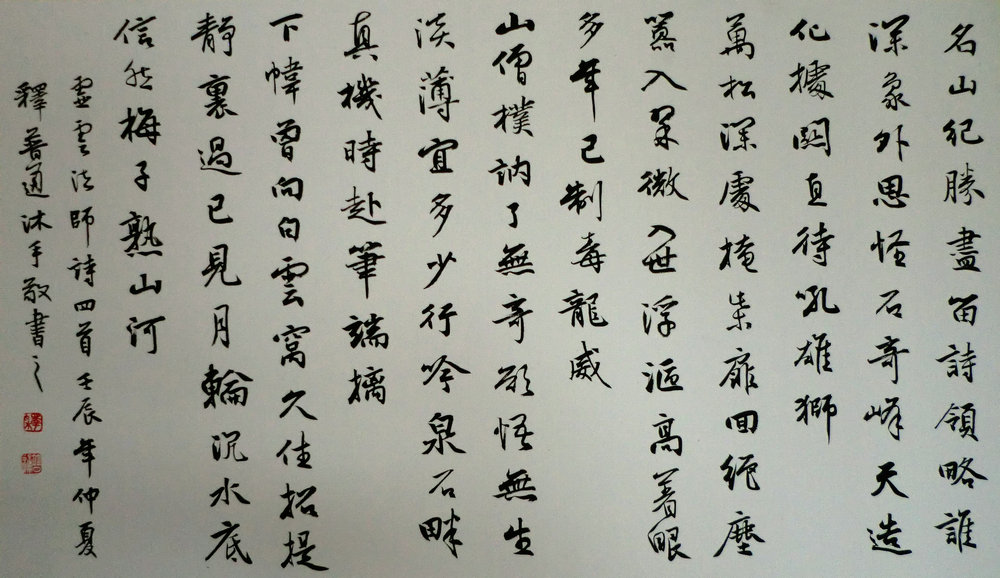 名山紀勝盡留詩領略誰
深象外思怪石奇峰天造
化據關直待吼雄獅
萬松深處掩柴扉回絕塵
囂入翠微入世浮漚高着眼
多年已制毒龍威
山僧樸訥了無奇願悟無生
淡薄宜多少行吟泉石畔
真機時赴筆端摛
下幃曾向白雲窩久住招提
靜裏過已見月輪沉水底
信然梅子熟山河
虛雲法師詩四首壬辰年仲夏
釋普通沐手敬書之